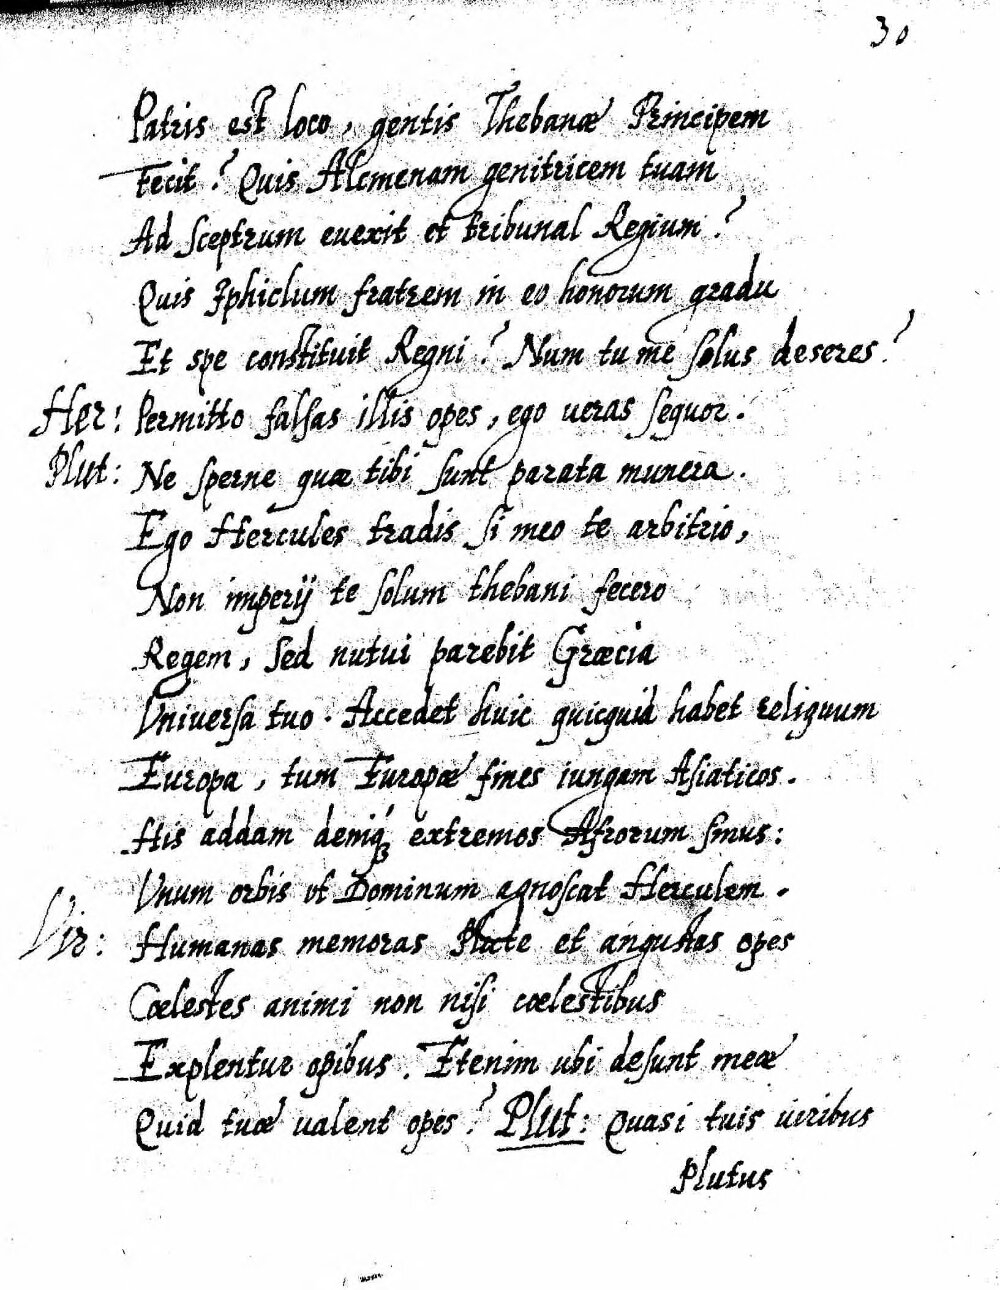 30
Patris est loco, gentis Thebanæ Principem
Fecit? Quis Alcmenam genitricem tuam
Ad sceptrum euexit et tribunal Regium?
Quis Iphiclum fratrem in eo honorum gradu
Et spe constituit Regni? Num tu me solus deseres?
Her: Permitto falsas illis opes, ego ueras sequor.
Plut: Ne sperne quæ tibi sunt parata munera.
Ego Hercules tradis si meo te arbitrio,
Non imperij te solum thebani fecero
Regem, sed nutui parebit Græcia
Vniuersa tuo. Accedet huic quicquid habet reliquum
Europa, tum Europæ fines iungam Asiaticos.
His addam deniq; extremos Afrorum sinus:
Vnum orbis vt Dominum agnoscat Herculem.
Vir: Humanas memoras Plute et angustas opes
Cœlestes animi non nisi cœlestibus
Explentur opibus. Etenim ubi desunt meæ
Quid tuæ ualent opes? Plut: Quasi tuis uiribus
Plutus